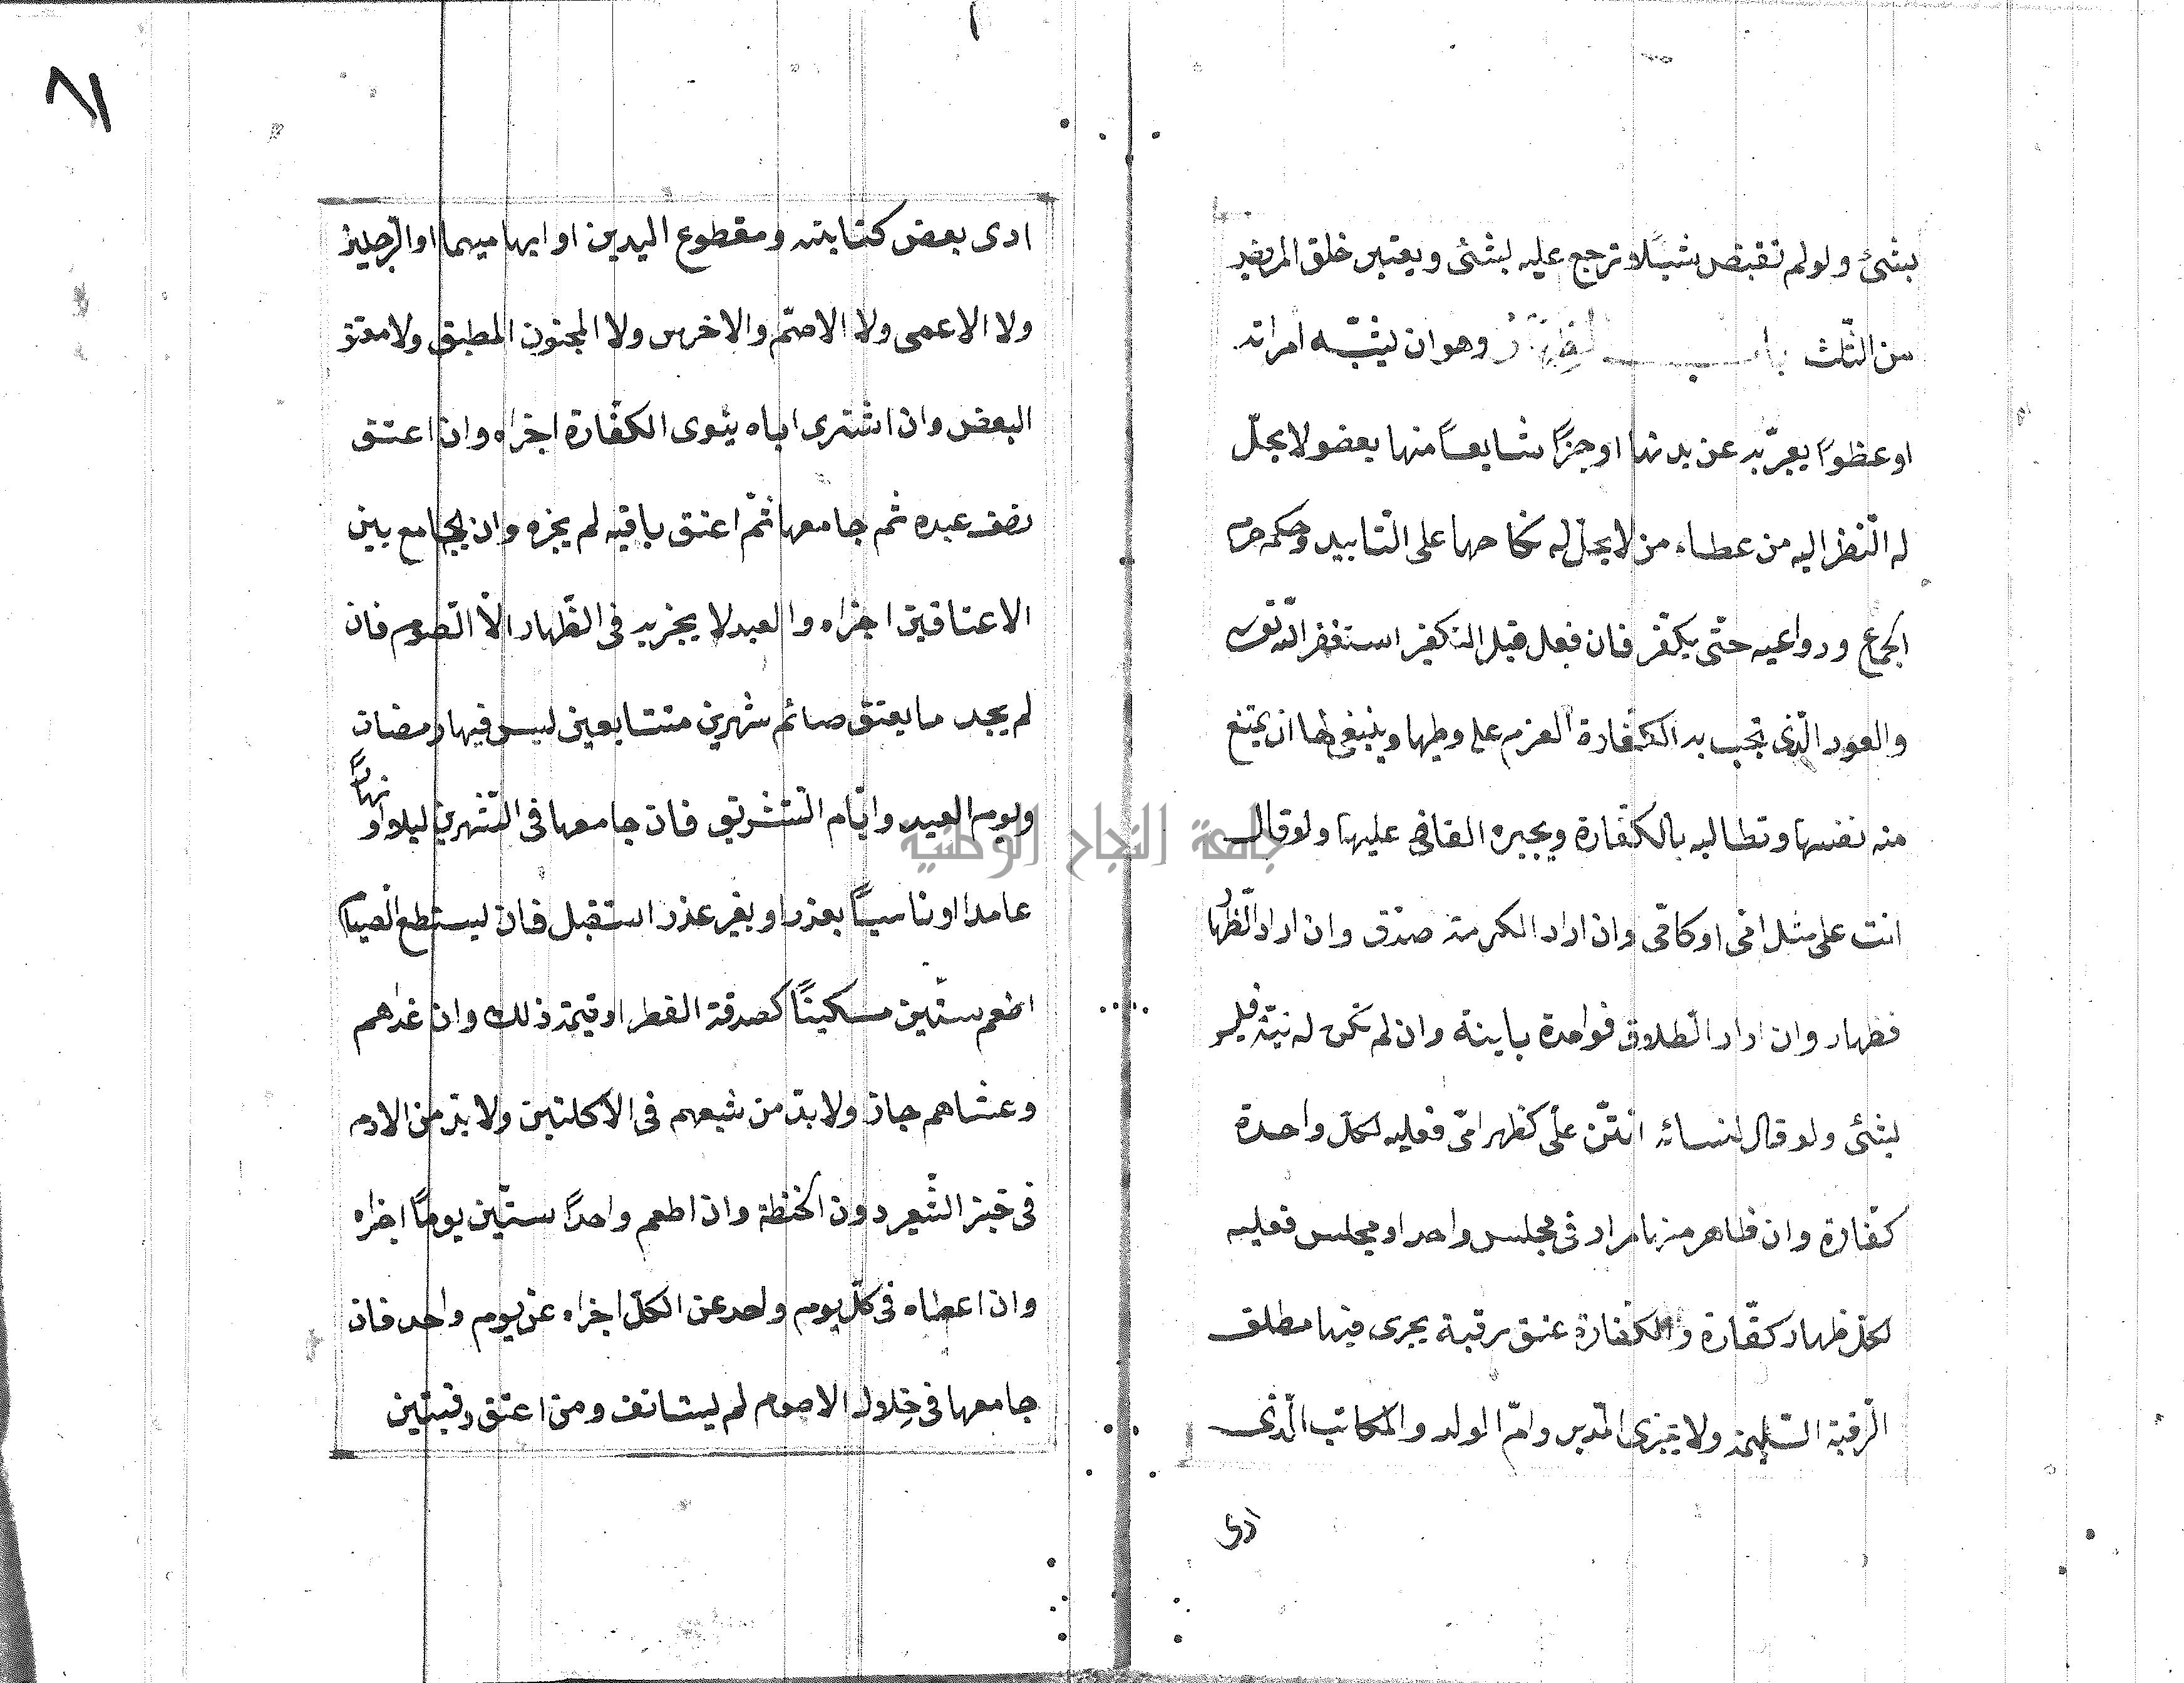 بشئ ولو لم تقبض شيئا لا ترجع عليه بشئ ويعتبر خلق المريض
من الثلث باب الظهار وهو ان يشبه امراته
او عظوا يعبر به عن بدنها او جزأ شايعا منها بعضو لا يحل
له النظر اليه من عطاء من لا يحل له نكاحها على التابيد وحكمه حرم
الجماع ودواعيه حتى يكفر فان فعل قبل التكفير استغفر الله
والعود الذى تجب به الكفارة العزم على وطيها وينبغى لها ان يمتنع
منه نفسها وتطالبه بالكفارة ويجبره القاضى عليها ولو قال
انت على مثل امى او كامى وان اراد الكرمة صدق وان اراد الظهار
فظهار وان اراد الطلاق فواحدة باينة وان لم تكن له نية فليس
بشئ ولو قال لنسائه انتن على كظهر امى فعليه لكل واحدة
كفارة وان ظاهر منها مرار فى مجلس واحد او مجلس فعليه
لكل ظهار كفارة والكفارة عتق رقبة يجرى فيها مطلق
الرقبة السليمة ولا يجزى المدبر وام الولد والمكاتب الذى
ادى
٦١
ادى بعض كتابته ومقطوع اليدين او ابهاميهما او الرجلين
ولا الاعمى ولا الاصم والاخرس ولا المجنون المطبق ولا معتق
البعض وان اشترى اباه ينوى الكفارة اجزاه وان اعتق
نصف عبده ثم جامعها ثم اعتق باقيه لم يجزه وان لم يجامع بين
الاعتاقين اجزاه والعبد لا يجزيه فى الظهار الا الصوم فان
لم يجد ما يعتق صائم شهرين متتابعين ليس فيها رمضان
ويوم العيد وايام التشريق فان جامعها فى الشهرين ليلا او نهارا
عامدا او ناسيا بعذر او بغير عذر استقبل فان ليستطع الصيام
اطعم ستين مسكينا كصدقة الفطر او قيمة ذلك وان غداهم
وعشاهم جاز ولا بد من شبعهم فى الاكلتين ولا بد من الادم
فى خبز الشعير دون الحنطة وان اطعم واحدا ستين يوما اجزاه
وان اعطاه فى كل يوم واحد عن الكل اجزاه عن يوم واحد فان
جامعها فى خلال الاصوم لم يستانف ومن اعتق رقبتين
جامعة النجاح الوطنية